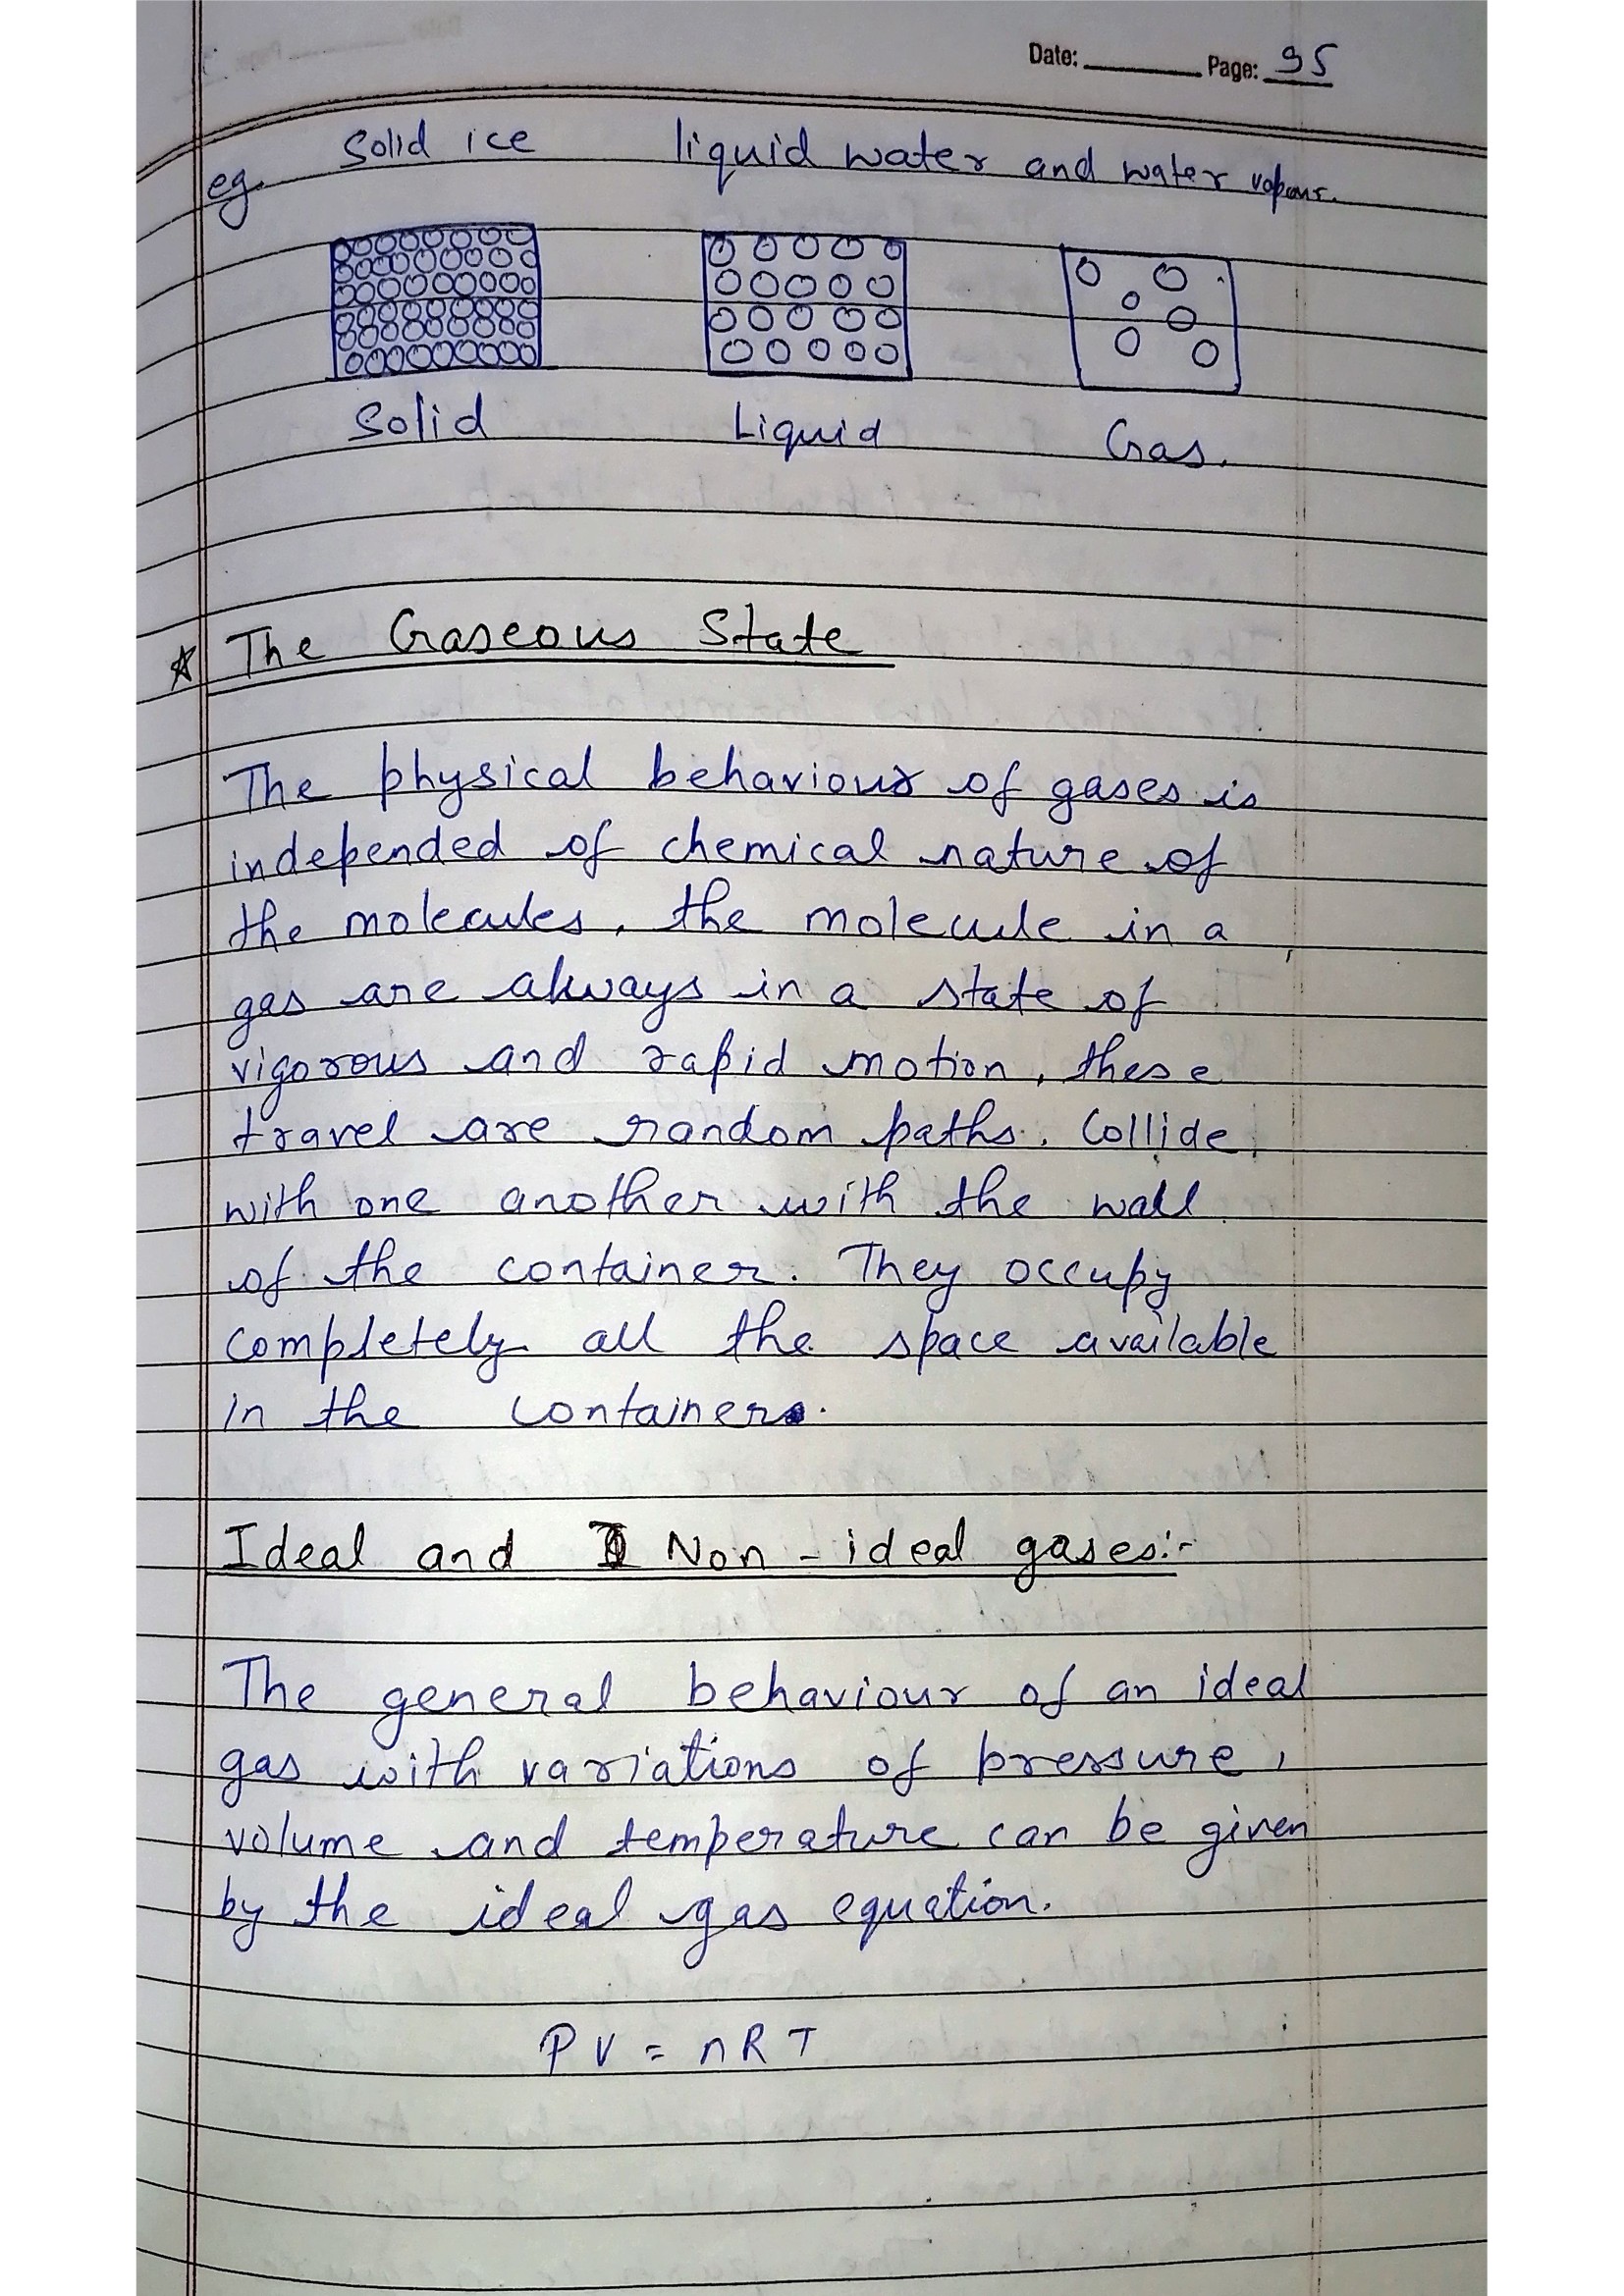 Date: Page: 95
eg. Solid ice liquid water and water vapour.
Solid Liquid Gas.
The Gaseous State
The physical behaviour of gases is
independed of chemical nature of
the molecules, the molecule in a
gas are always in a state of
vigorous and rapid motion, these
travel are random paths. Collide
with one another with the wall
of the container. They occupy
completely all the space available
in the container.
Ideal and Non - ideal gases:-
The general behaviour of an ideal
gas with variations of pressure,
volume and temperature can be given
by the ideal gas equation.
PV = nRT